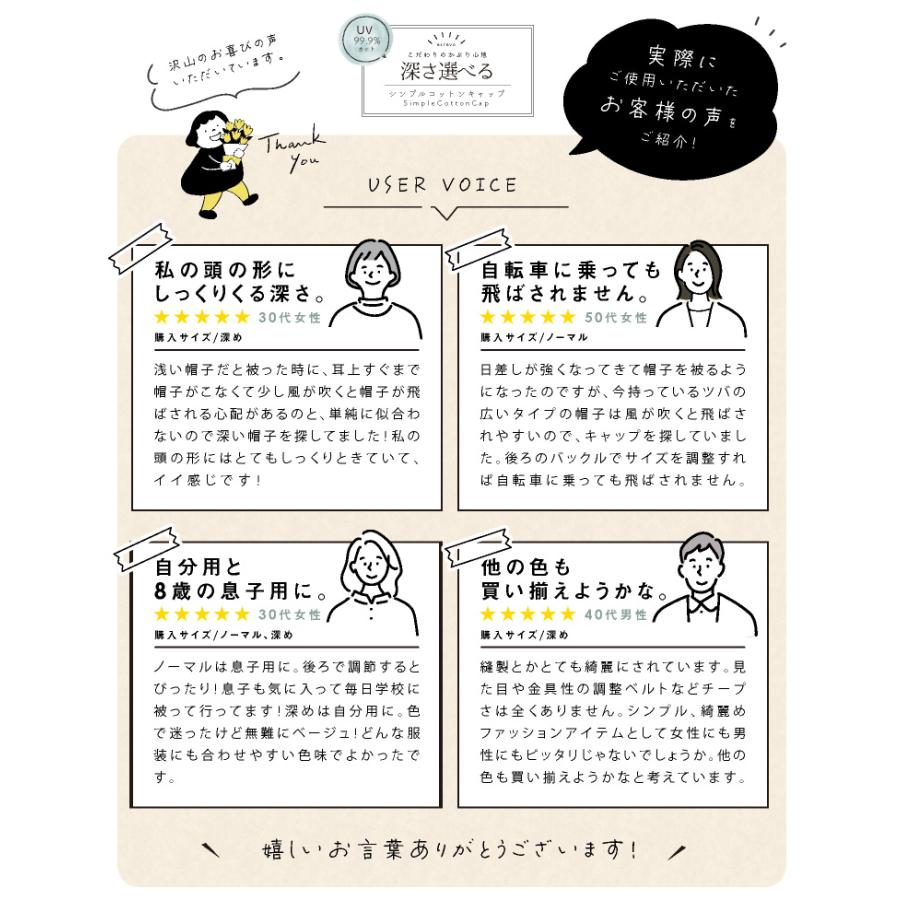 沢山のお喜びの声
いただいています。
Thank
you
UV
99.9%
カット
こだわりのかぶり心地
深さ選べる
シンプルコットンキャップ
SimpleCottonCap
実際に
ご使用いただいた
お客様の声を
ご紹介!
USER VOICE
私の頭の形に
しっくりくる深さ。
★★★★★ 30代女性
購入サイズ/深め
浅い帽子だと被った時に、耳上すぐまで
帽子がこなくて少し風が吹くと帽子が飛
ばされる心配があるのと、単純に似合わ
ないので深い帽子を探してました!私の
頭の形にはとてもしっくりときていて、
イイ感じです!
自転車に乗っても
飛ばされません。
★★★★★ 50代女性
購入サイズ/ノーマル
日差しが強くなってきて帽子を被るよう
になったのですが、今持っているツバの
広いタイプの帽子は風が吹くと飛ばさ
れやすいので、キャップを探していまし
た。後ろのバックルでサイズを調整すれ
ば自転車に乗っても飛ばされません。
自分用と
8歳の息子用に。
★★★★★ 30代女性
購入サイズ/ノーマル、深め
ノーマルは息子用に。後ろで調節すると
ぴったり!息子も気に入って毎日学校に
被って行ってます!深めは自分用に。色
で迷ったけど無難にベージュ!どんな服
装にも合わせやすい色味でよかったで
す。
他の色も
買い揃えようかな。
★★★★★ 40代男性
購入サイズ/深め
縫製とかとても綺麗にされています。見
た目や金具性の調整ベルトなどチープ
さは全くありません。シンプル、綺麗め
ファッションアイテムとして女性にも男
性にもピッタリじゃないでしょうか。他の
色も買い揃えようかなと考えています。
嬉しいお言葉ありがとうございます!